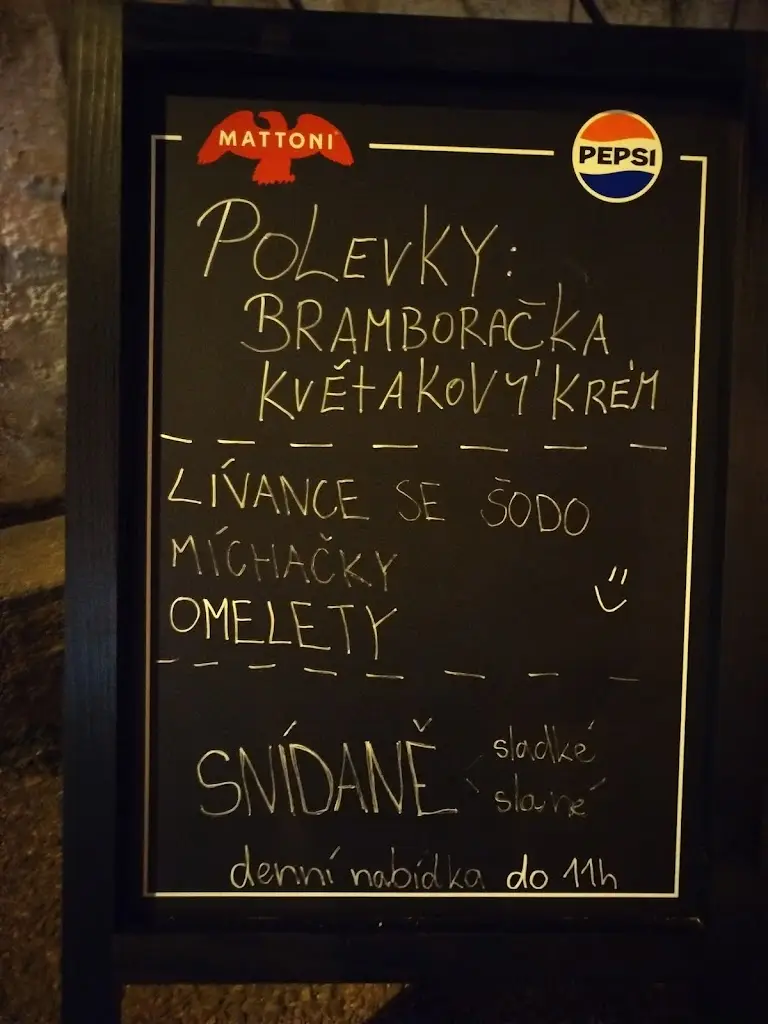 MATTONI
PEPSI
POLEVKY:
BRAMBORAČKA
KVĚTAKOVÝ KRÉM
LÍVANCE SE ŠODO
MÍCHAČKY
OMELETY
SNÍDANĚ < sladké
slané
denní nabídka do 11h